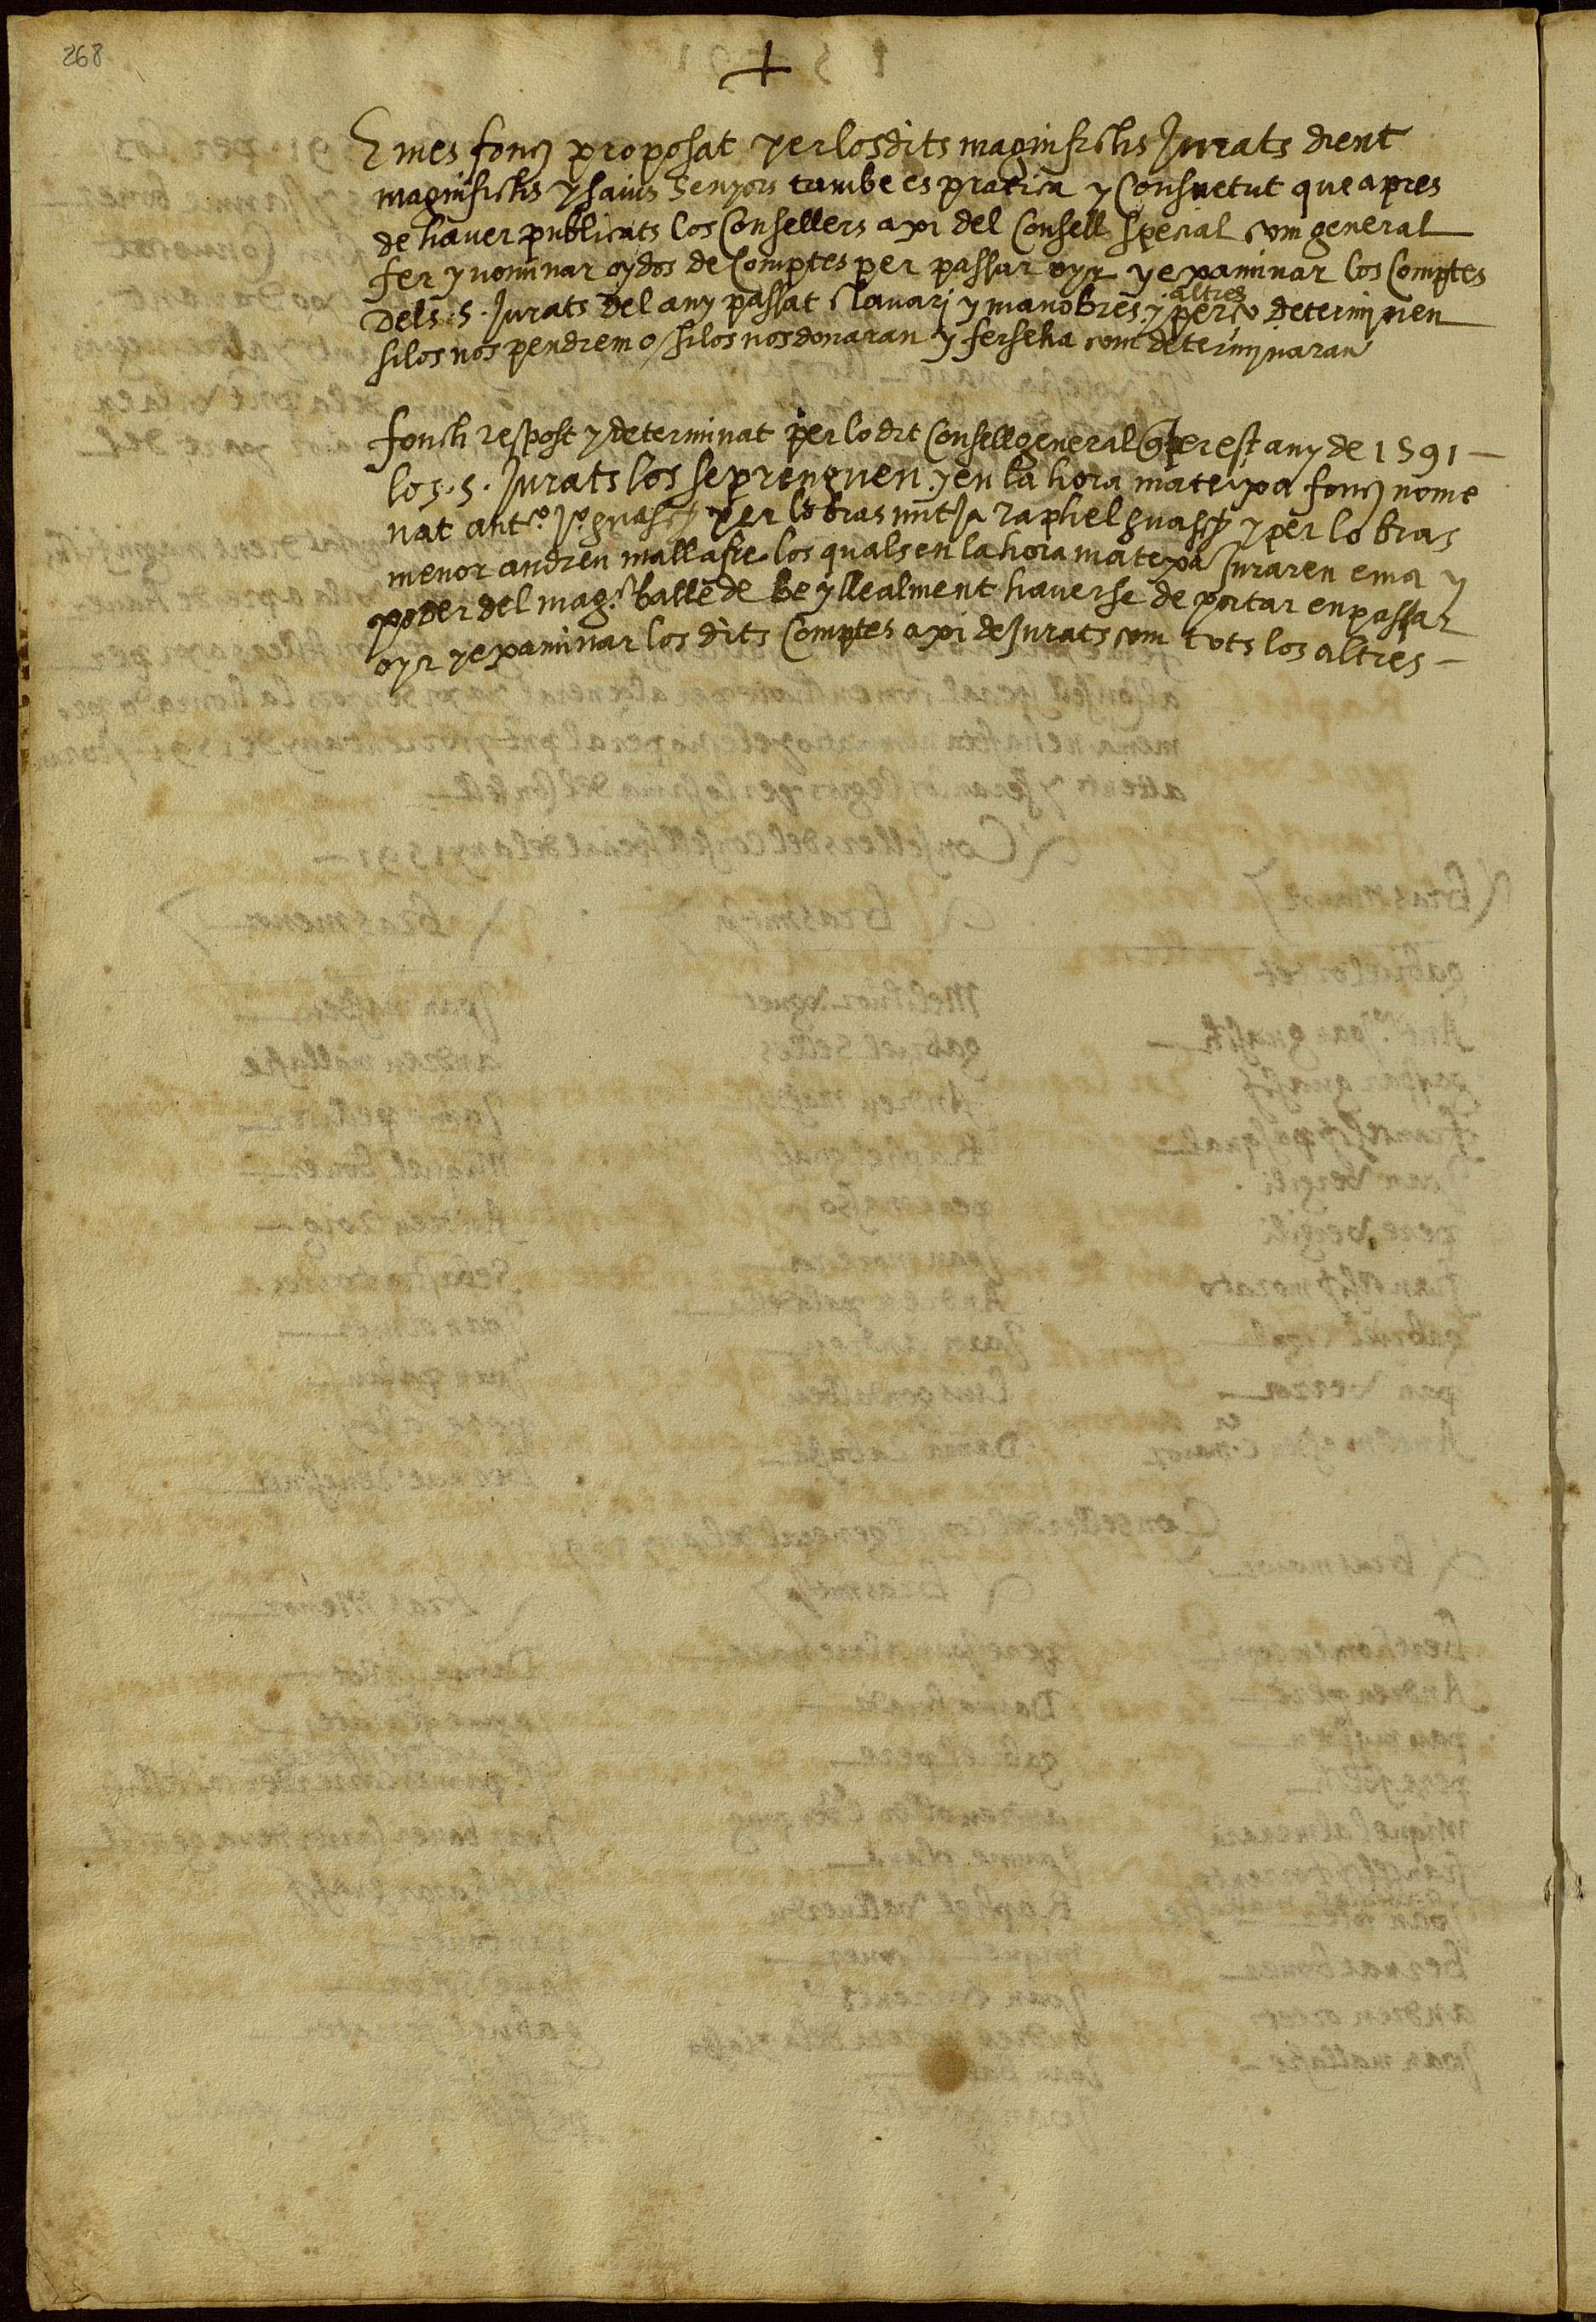 268
E mes fonch proposat per los dits maginfichs Jurats dient
maginfichs y savis senyors tambe es pratica y Consuetut que apres
de haver publicats los Consellers axi del Consell special com general
fer y nominar oydos de Comptes per passar oyr y examinar los Comptes
dels .s. Jurats del any passat Clavari y manobres y altres perço determinen
si los nos pendrem o si los nos donaran y ferseha com determinaran
fonch respost y determinat per lo dit Consell general que per est any de 1591
los .s. Jurats los se prenguen y en la hora mateixa fonch nome
nat anto. Jo. guasch per lo bras mitja raphel guasch y per lo bras
menor andreu mallafre los quals en la hora matexa Juraren en ma y
poder del mag.ch balle de be y llealment haverse de portar en passar
oyr y examinar los dits Comptes axi de Jurats com tots los altres